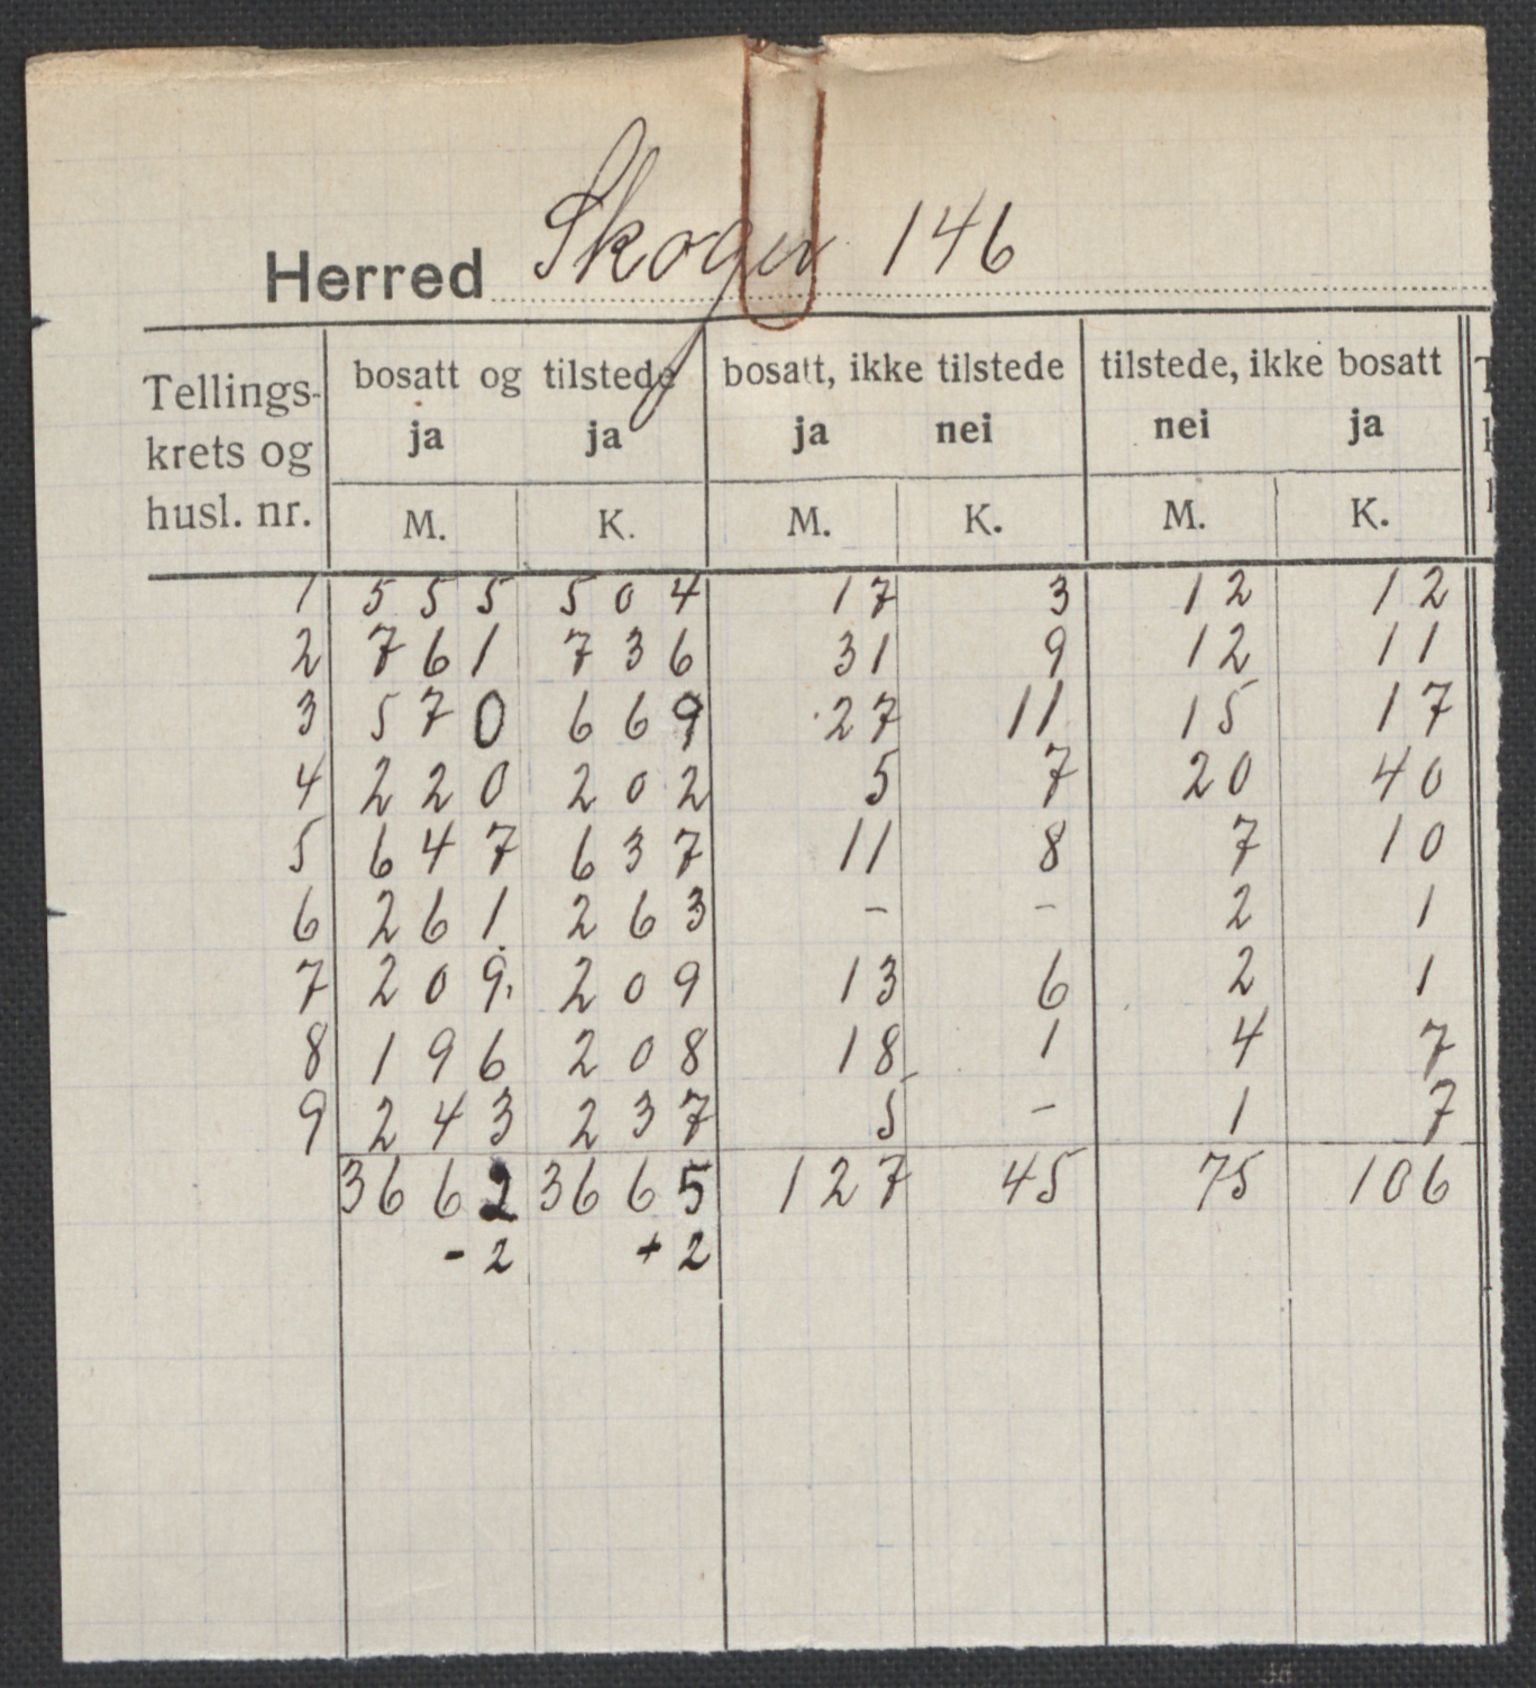 Herred Skoger 146
Tellings- bosatt og tilstede bosatt, ikke tilstede tilstede, ikke bosatt
krets og ja ja ja nei nei ja
husl. nr. M. K. M. K. M. K.
1 555 504 17 3 12 12
2 761 736 31 9 12 11
3 570 669 27 11 15 17
4 220 202 5 7 20 40
5 647 637 11 8 7 10
6 261 263 - - 2 1
7 209 209 13 6 2 1
8 196 208 18 1 4 7
9 243 237 5 - 1 7
3662 3665 127 45 75 106
-2 +2